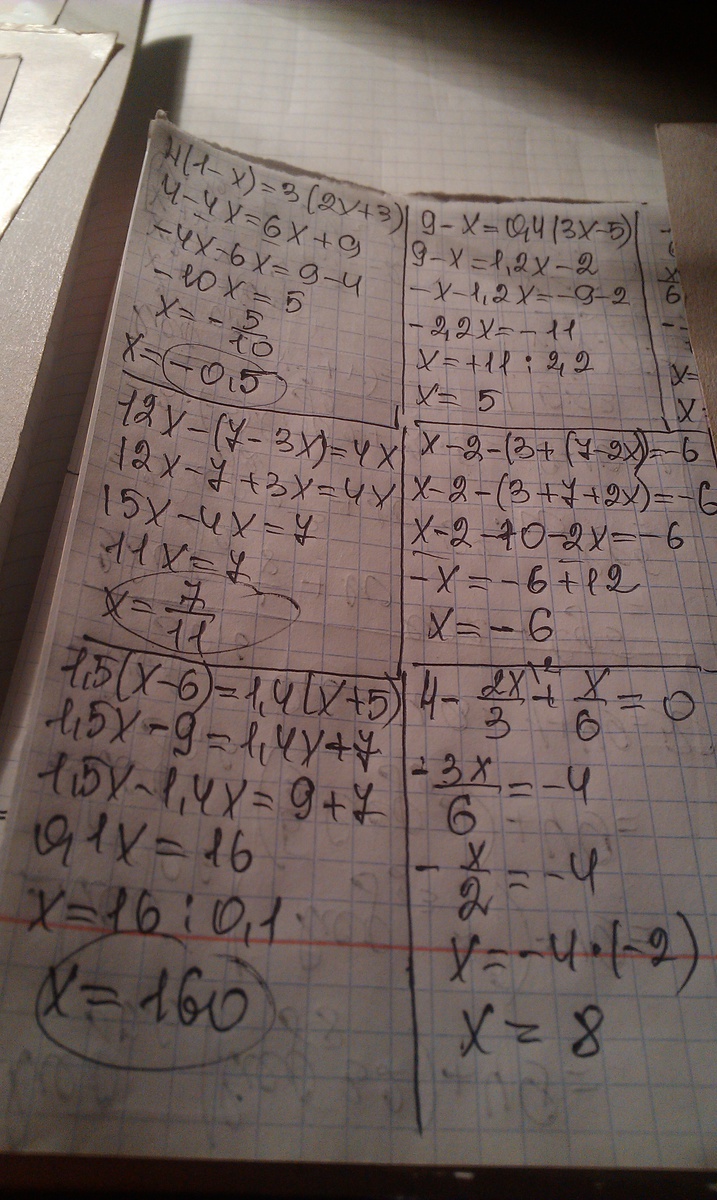 4(1-x)=3(2x+3)
4-4x=6x+9
-4x-6x=9-4
-10x=5
x=-5/10
x=-0,5
9-x=0,4(3x-5)
9-x=1,2x-2
-x-1,2x=-9-2
-2,2x=-11
x=+11:2,2
x=5
12x-(7-3x)=4x
12x-7+3x=4x
15x-4x=7
11x=7
x=7/11
x-2-(3+(7-2x)=-6
x-2-(3+7+2x)=-6
x-2-10-2x=-6
-x=-6+12
x=-6
1,5(x-6)=1,4(x+5)
1,5x-9=1,4x+7
1,5x-1,4x=9+7
0,1x=16
x=16:0,1
x=160
4-2x/3\2+x/6=0
-3x/6=-4
-x/2=-4
x=-4·(-2)
x=8